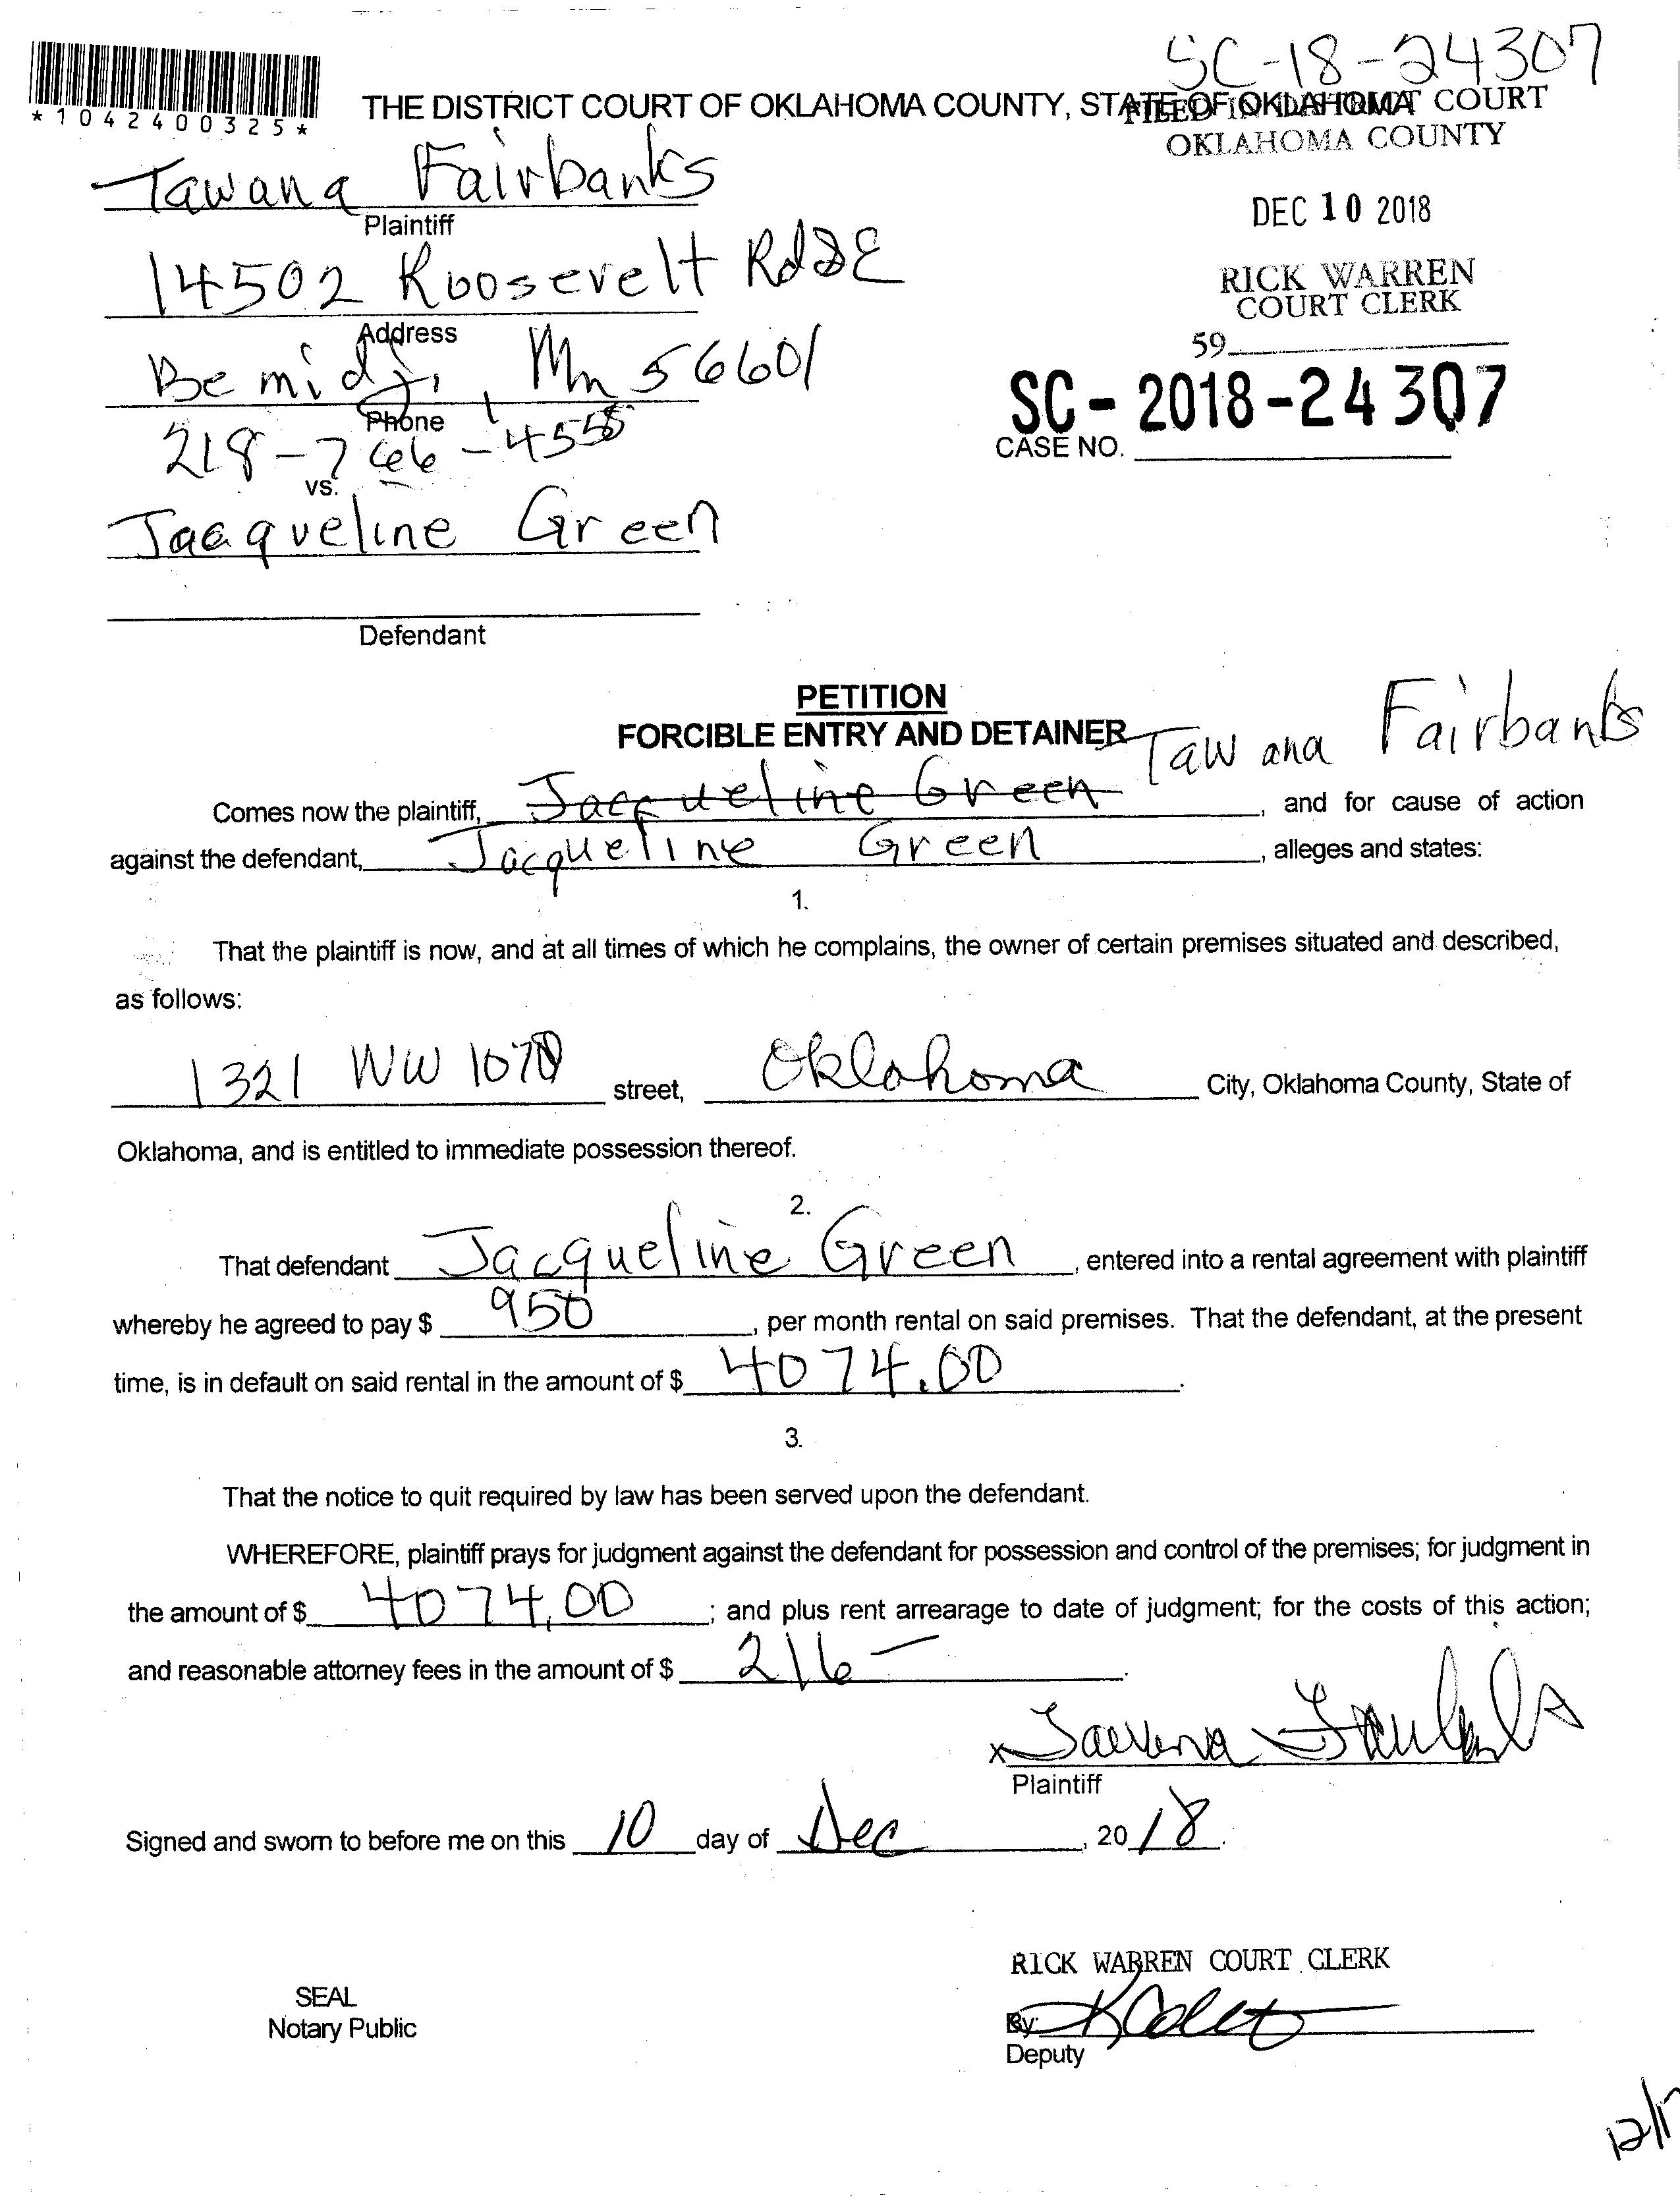 SC-18-24307
*1042400325*
THE DISTRICT COURT OF OKLAHOMA COUNTY, STATE OF OKLAHOMA
FILED IN DISTRICT COURT
OKLAHOMA COUNTY
Tawana Fairbanks
Plaintiff
DEC 10 2018
14502 Roosevelt Rd SE
RICK WARREN
COURT CLERK
Address
59
Bemidji, Mn 56601
Phone
SC-2018-24307
218-766-4555
CASE NO.
vs.
Jacqueline Green
Defendant
PETITION
FORCIBLE ENTRY AND DETAINER
Tawana Fairbanks
Comes now the plaintiff, Jacqueline Green, and for cause of action
against the defendant, Jacqueline Green, alleges and states:
1.
That the plaintiff is now, and at all times of which he complains, the owner of certain premises situated and described,
as follows:
1321 street, Oklahoma City, Oklahoma County, State of
Oklahoma, and is entitled to immediate possession thereof.
2.
That defendant Jacqueline Green, entered into a rental agreement with plaintiff
whereby he agreed to pay $ 950, per month rental on said premises. That the defendant, at the present
time, is in default on said rental in the amount of $ 4074.00.
3.
That the notice to quit required by law has been served upon the defendant.
WHEREFORE, plaintiff prays for judgment against the defendant for possession and control of the premises; for judgment in
the amount of $ 4074.00; and plus rent arrearage to date of judgment; for the costs of this action;
and reasonable attorney fees in the amount of $ 216-.
x Tawana Fairbanks
Plaintiff
Signed and sworn to before me on this 10 day of Dec, 2018.
RICK WARREN COURT CLERK
SEAL
Notary Public
By:
Deputy